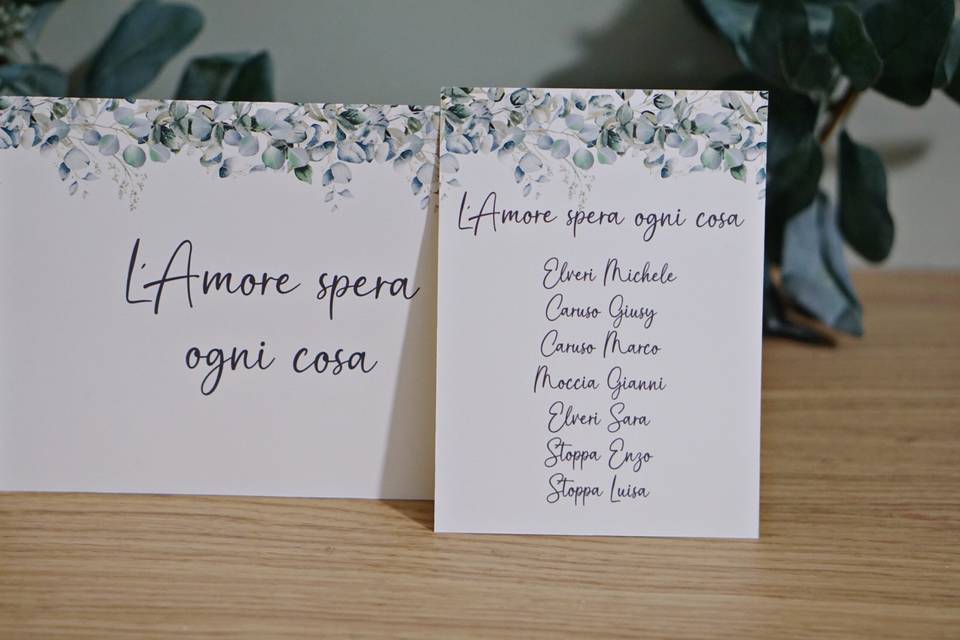 L'Amore spera
ogni cosa
L'Amore spera ogni cosa
Elveri Michele
Caruso Giusy
Caruso Marco
Moccia Gianni
Elveri Sara
Stoppa Enzo
Stoppa Luisa